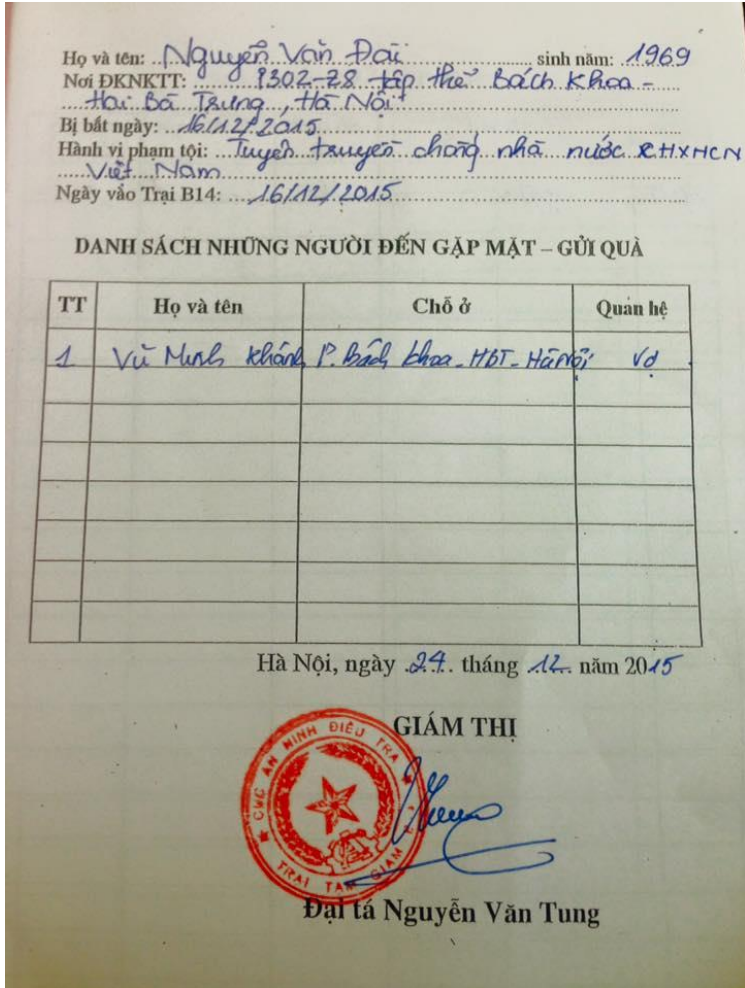 Họ và tên: Nguyễn Văn Đài sinh năm: 1969
Nơi ĐKNKTT: P302-Z8 tập thể Bách Khoa -
Hai Bà Trưng, Hà Nội
Bị bắt ngày: 16/12/2015
Hành vi phạm tội: Tuyên truyền chống nhà nước CHXHCN
Việt Nam
Ngày vào Trại B14: 16/12/2015
DANH SÁCH NHỮNG NGƯỜI ĐẾN GẶP MẶT – GỬI QUÀ
TT Họ và tên Chỗ ở Quan hệ
1 Vũ Minh Khánh P. Bách khoa - HBT - Hà Nội Vợ
Hà Nội, ngày 24 tháng 12 năm 2015
GIÁM THỊ
CỤC AN NINH ĐIỀU TRA
TRẠI TẠM GIAM
Đại tá Nguyễn Văn Tung